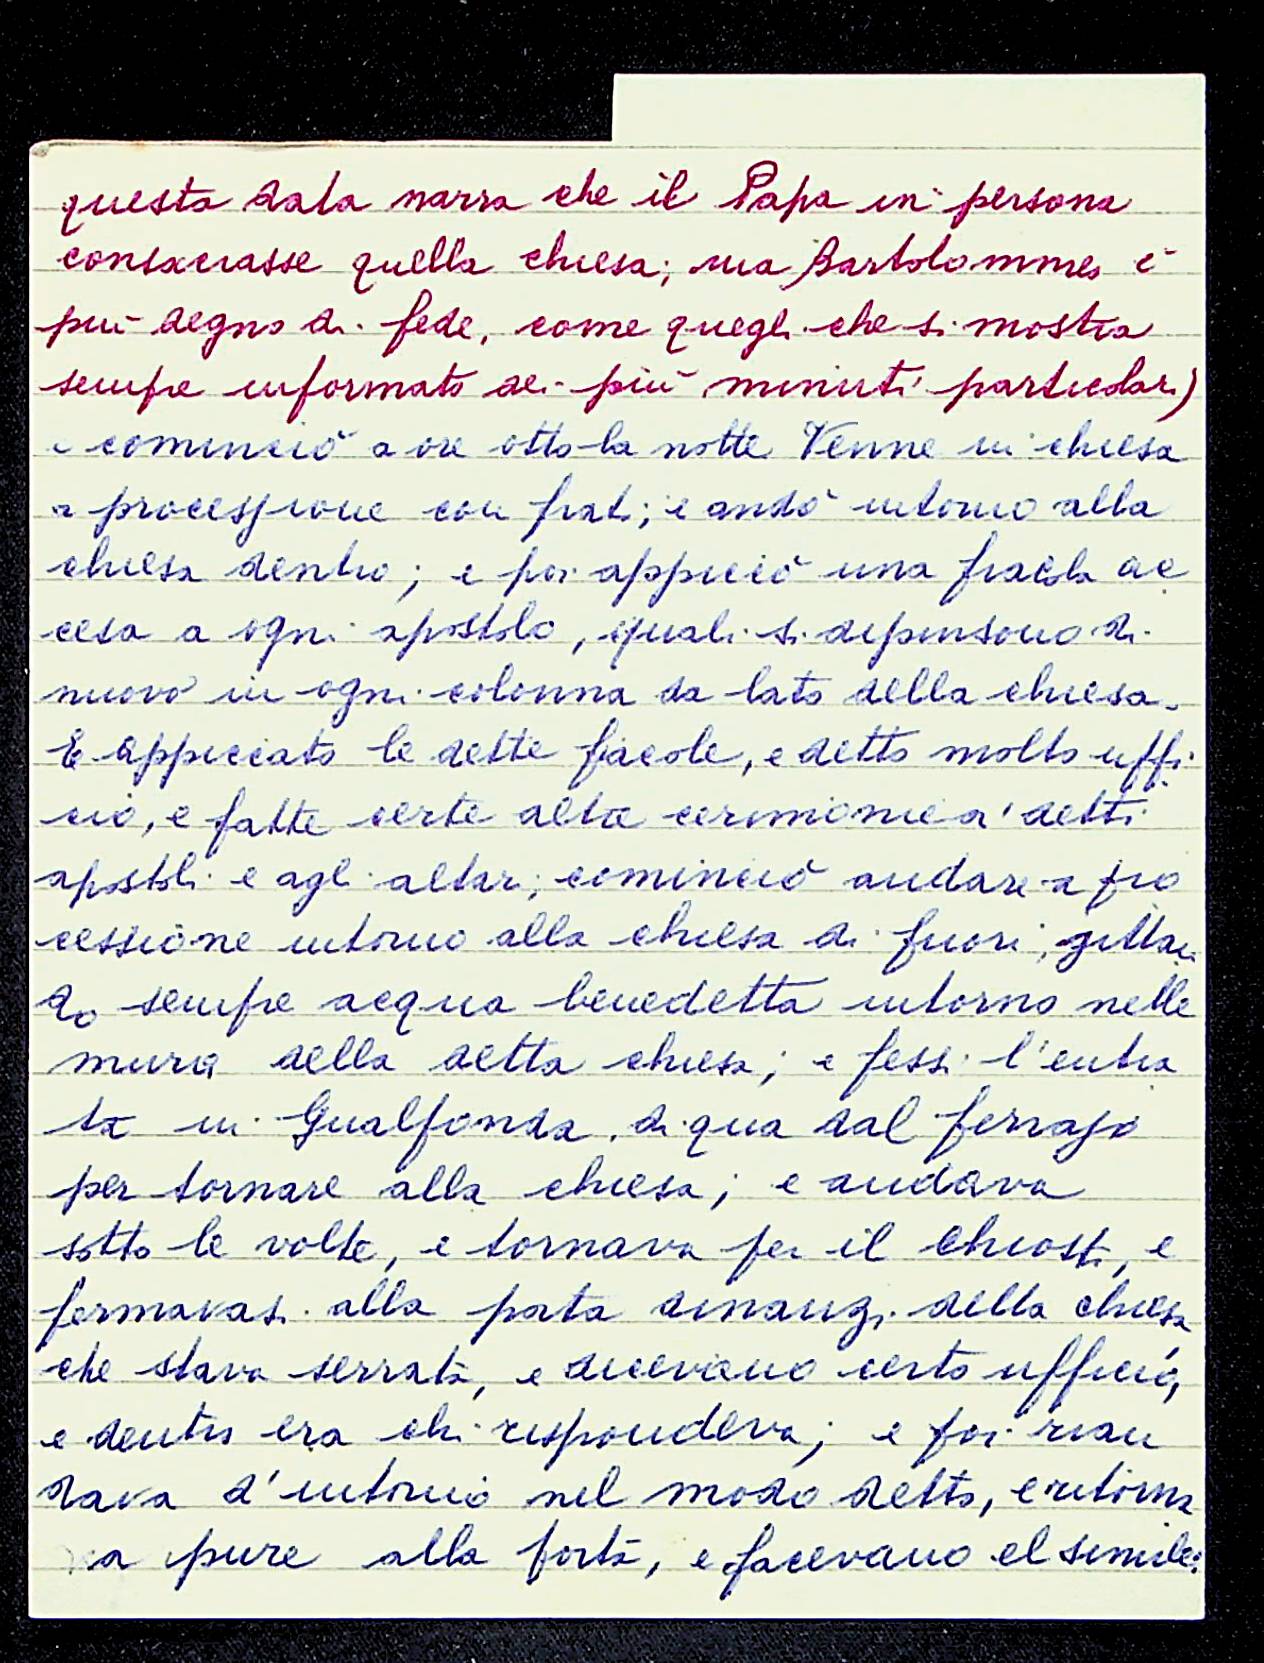 questa data narra che il Papa in persona
consacrasse quella chiesa; ma Bartolommeo è
più degno di fede, come quegli che si mostra
sempre informato dei più minuti particolari)
e cominciò a ore otto la notte. Venne in chiesa
a processione con frati; e andò intorno alla
chiesa dentro; e poi appicciò una fiacola ac
cesa a ogni apostolo, quali si dipinsono di
nuovo in ogni colonna da lato della chiesa.
E appicciato le dette fiacole, e detto molto uffi
cio, e fatte certe altre cerimonie a' detti
apostoli e agli altari; cominciò andare a pro
cessione intorno alla chiesa di fuori, gittan
do sempre acqua benedetta intorno nelle
mura della detta chiesa; e fessi l'entra
ta in Gualfonda, di qua dal
per tornare alla chiesa; e andava
sotto le volte, e tornava per il chiostri, e
fermavasi alla porta dinanzi della chiesa
che stava serrata, e dicevano certo ufficio,
e dentro era chi rispondeva; e poi rian
dava d'intorno nel modo detto, e ritorna
va pure alla porta, e facevano el simile: